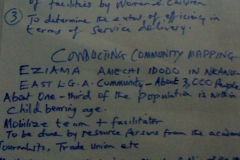 of facilities by Women and Children
③ To determine the extent of efficiency in
terms of Service delivery.
CONDUCTING COMMUNITY MAPPING
EZIAMA - AMECHI IDODO IN NKANU
EAST L.G.A. Community - About 3,000 People
About One - third of the population is within
Child bearing age.
Mobilize team + facilitator
To be done by resource Persons from the academ
Journalists, Trade union etc